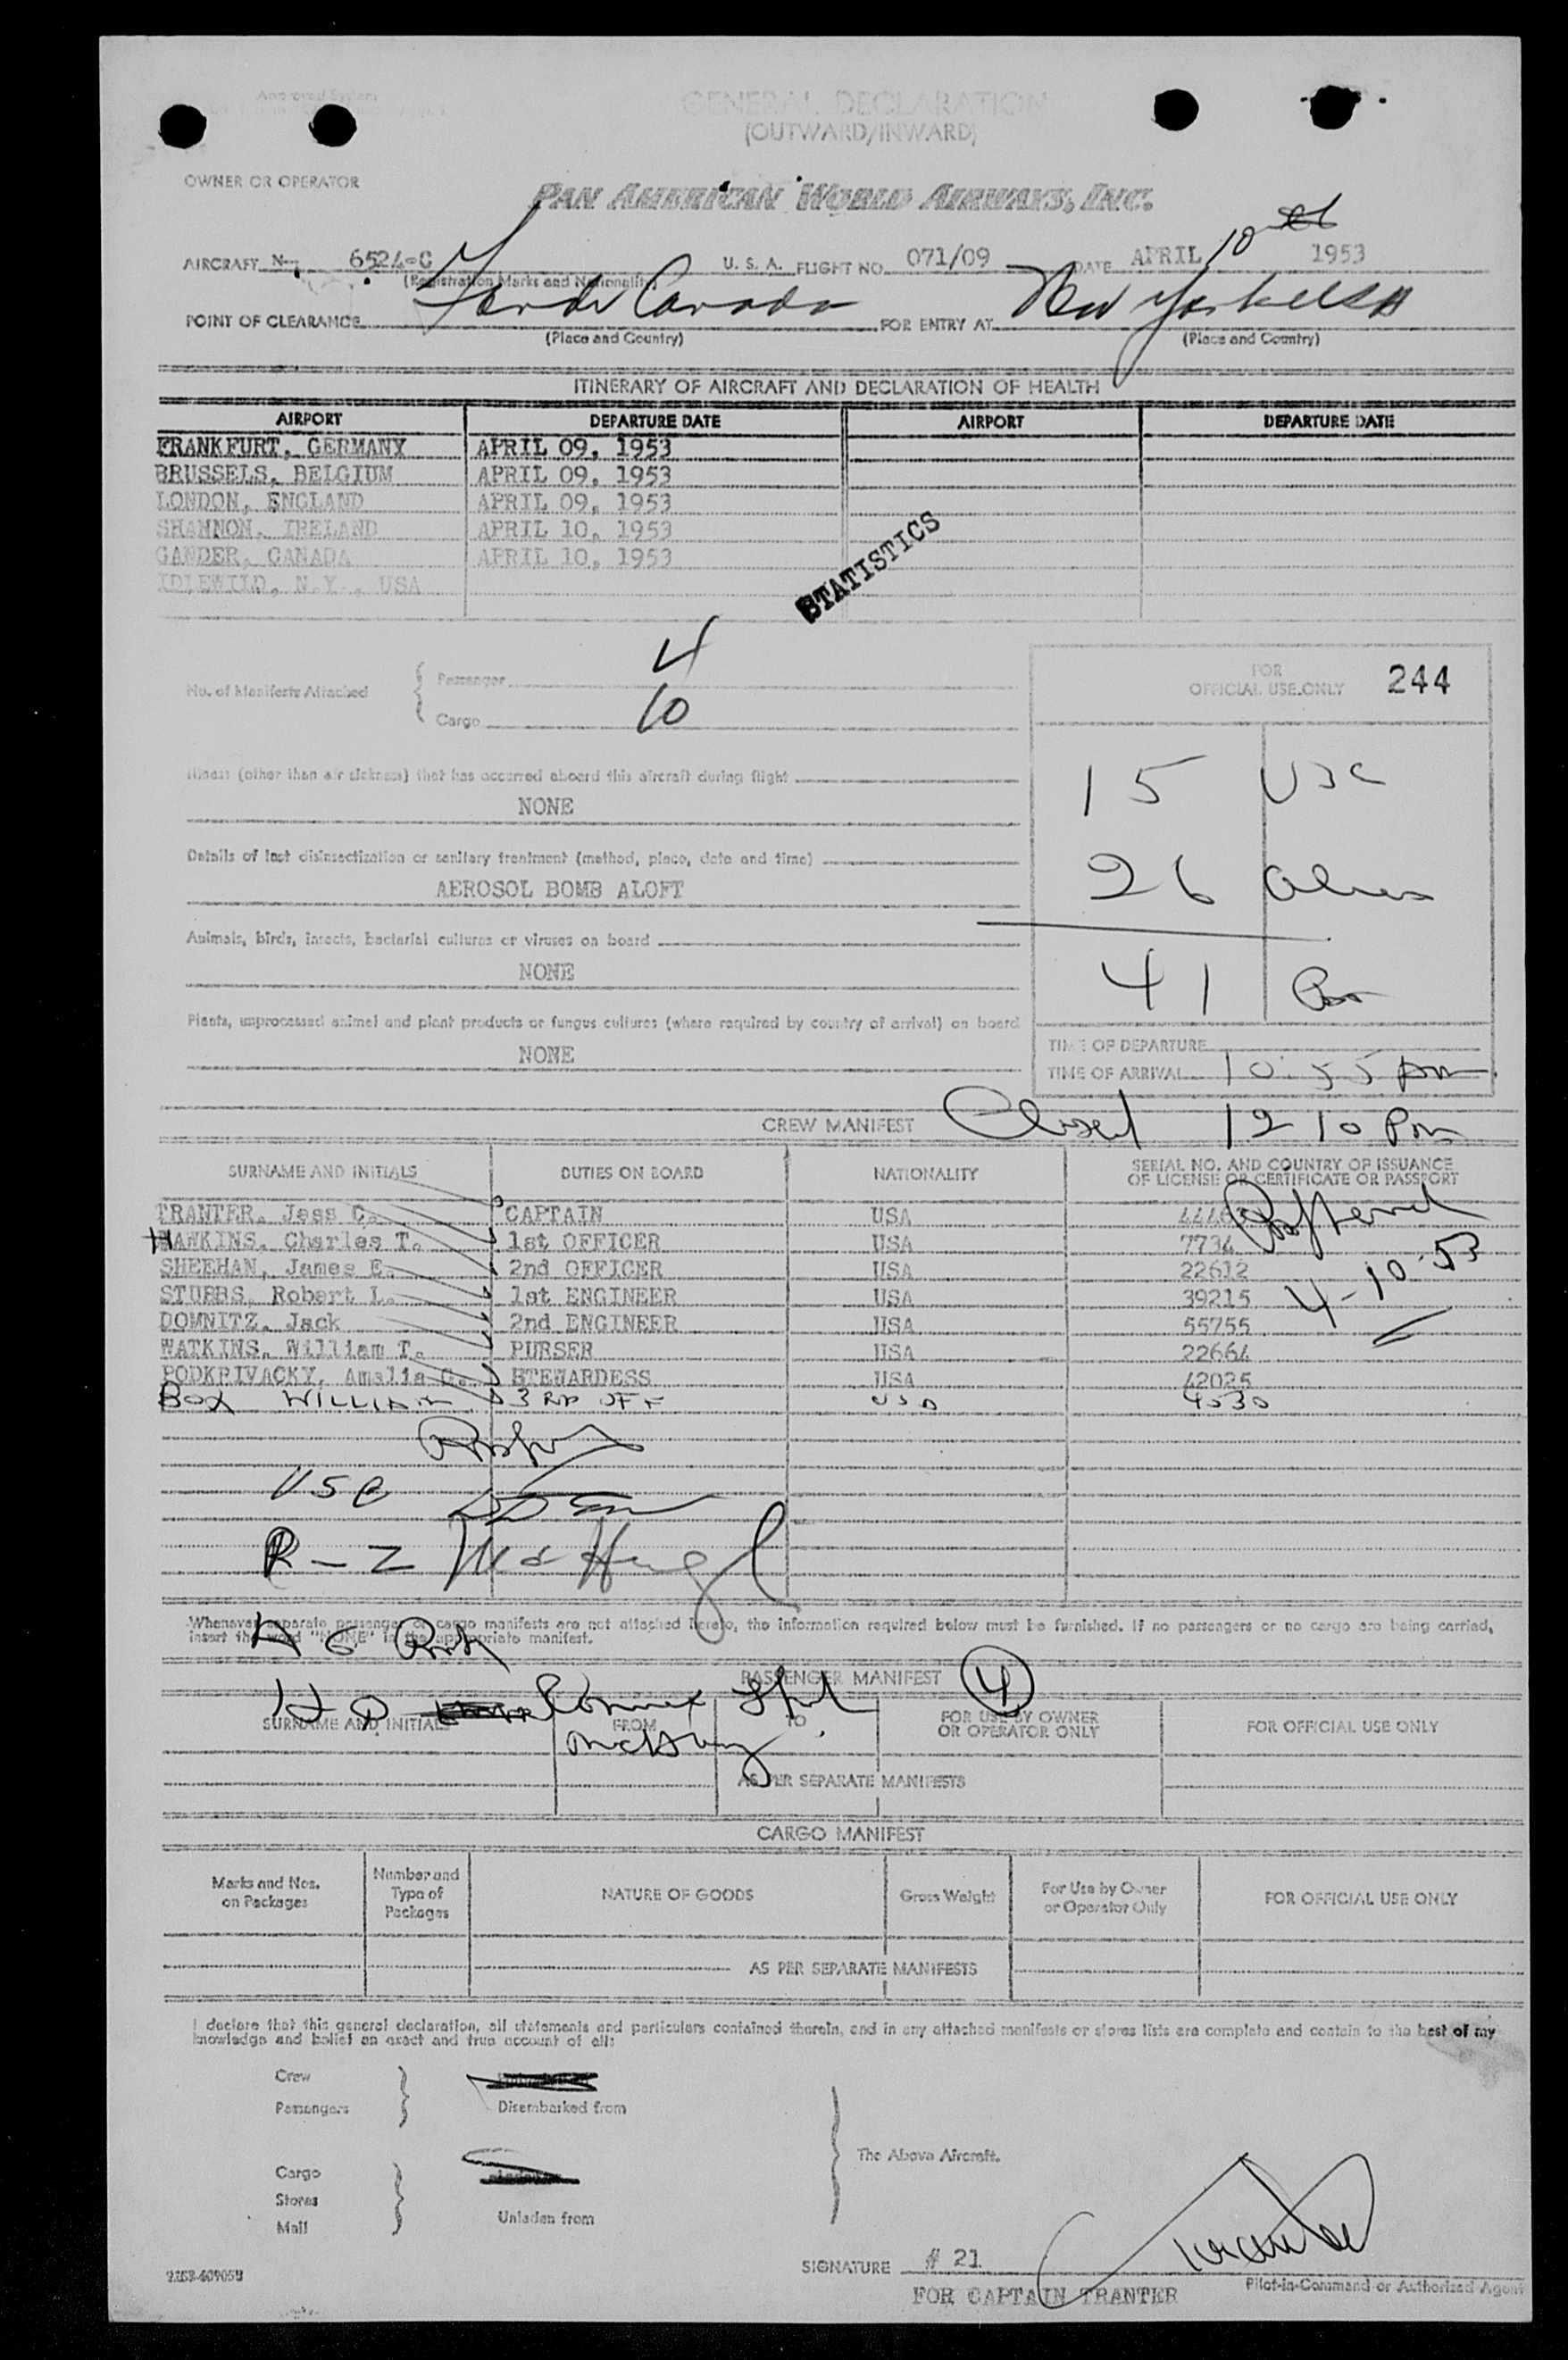 GENERAL DECLARATION
(OUTWARD/INWARD)
OWNER OR OPERATOR
PAN AMERICAN WORLD AIRWAYS, INC.
AIRCRAFT N- 6524-C U. S. A. FLIGHT NO. 071/09 DATE APRIL 10 1953
(Registration Marks and Nationality)
POINT OF CLEARANCE Gander Canada FOR ENTRY AT New York USA
(Place and Country) (Place and Country)
ITINERARY OF AIRCRAFT AND DECLARATION OF HEALTH
AIRPORT DEPARTURE DATE AIRPORT DEPARTURE DATE
FRANKFURT, GERMANY APRIL 09, 1953
BRUSSELS, BELGIUM APRIL 09, 1953
LONDON, ENGLAND APRIL 09, 1953
SHANNON, IRELAND APRIL 10, 1953
GANDER, CANADA APRIL 10, 1953
IDLEWILD, N.Y., USA
STATISTICS
No. of Manifests Attached
Passenger 4
Cargo 10
FOR
OFFICIAL USE ONLY 244
15 USC
26 Aliens
41
Illness (other than air sickness) that has occurred aboard this aircraft during flight
NONE
Details of last disinsectization or sanitary treatment (method, place, date and time)
AEROSOL BOMB ALOFT
Animals, birds, insects, bacterial cultures or viruses on board
NONE
Plants, unprocessed animal and plant products or fungus cultures (where required by country of arrival) on board
NONE
TIME OF DEPARTURE
TIME OF ARRIVAL 10:55 AM
Closed 12 10 Pm
CREW MANIFEST
SURNAME AND INITIALS DUTIES ON BOARD NATIONALITY SERIAL NO. AND COUNTRY OF ISSUANCE
OF LICENSE OR CERTIFICATE OR PASSPORT
TRANTER, Jess C. CAPTAIN USA
HAWKINS, Charles T. 1st OFFICER USA 7734
SHEEHAN, James E. 2nd OFFICER USA 22612
STUBBS, Robert L. 1st ENGINEER USA 39215
4-10-53
DOMNITZ, Jack 2nd ENGINEER USA 55755
WATKINS, William T. PURSER USA 22664
PODKRIVACKY, Amalia C. STEWARDESS USA 42025
BOX WILLIAM 3RD OFF USA 4530
USC
R-Z McHugh
Whenever separate passenger or cargo manifests are not attached hereto, the information required below must be furnished. If no passengers or no cargo are being carried,
insert the word "NONE" in the appropriate manifest.
PASSENGER MANIFEST 4
SURNAME AND INITIALS FROM TO FOR USE BY OWNER
OR OPERATOR ONLY FOR OFFICIAL USE ONLY
AS PER SEPARATE MANIFESTS
CARGO MANIFEST
Marks and Nos.
on Packages
Number and
Type of
Packages
NATURE OF GOODS
Gross Weight
For Use by Owner
or Operator Only
FOR OFFICIAL USE ONLY
AS PER SEPARATE MANIFESTS
I declare that this general declaration, all statements and particulars contained therein, and in any attached manifests or stores lists are complete and contain to the best of my
knowledge and belief an exact and true account of all:
Crew
Passengers Disembarked from
The Above Aircraft.
Cargo
Stores
Mail Unladen from
SIGNATURE # 21 Tranter
Pilot-in-Command or Authorized Agent
FOR CAPTAIN TRANTER